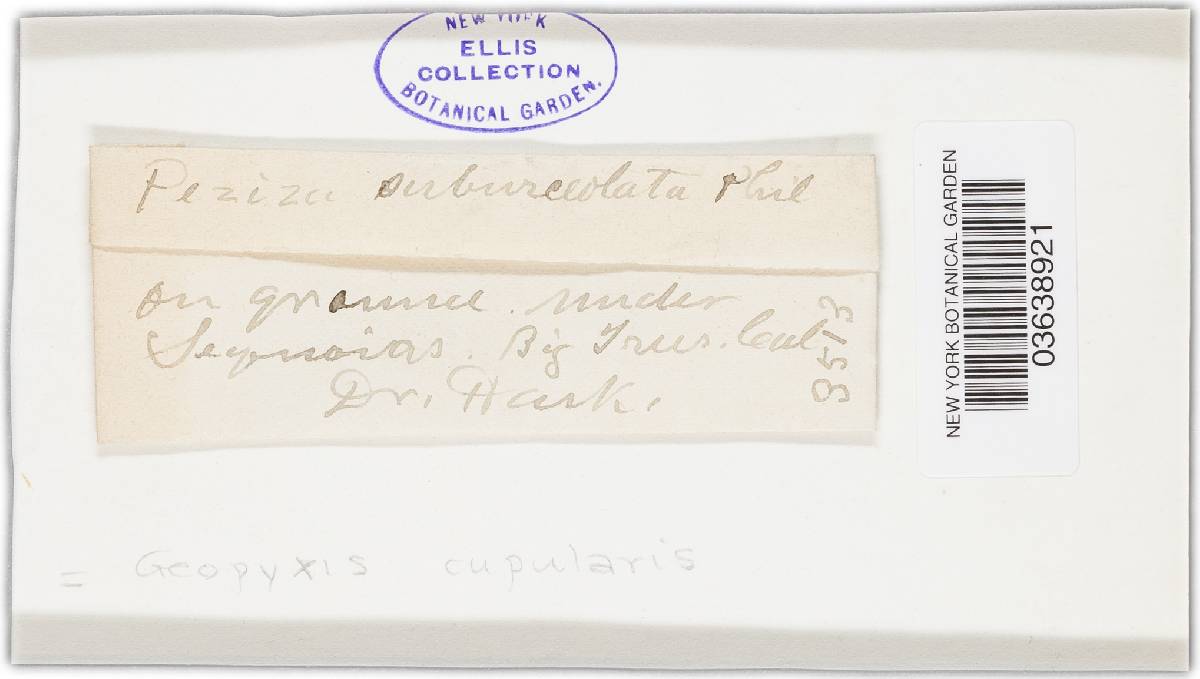 NEW YORK
ELLIS
COLLECTION
BOTANICAL GARDEN.
Peziza suburceolata Phil
on ground under
Sequoias. Big Trees. Cal
Dr. Hark.
3573
NEW YORK BOTANICAL GARDEN
03638921
= Geopyxis cupularis